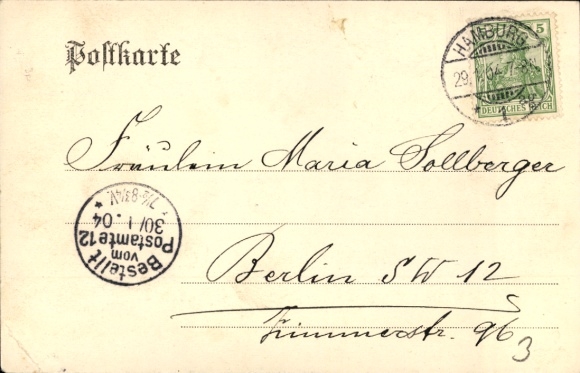 Postkarte
5
HAMBURG
29.1.04
1
DEUTSCHES REICH
Fräulein Maria Sollberger
Bestellt
vom
Postamte 12
30/1.04
Berlin SW 12
Zimmerstr. 96
3